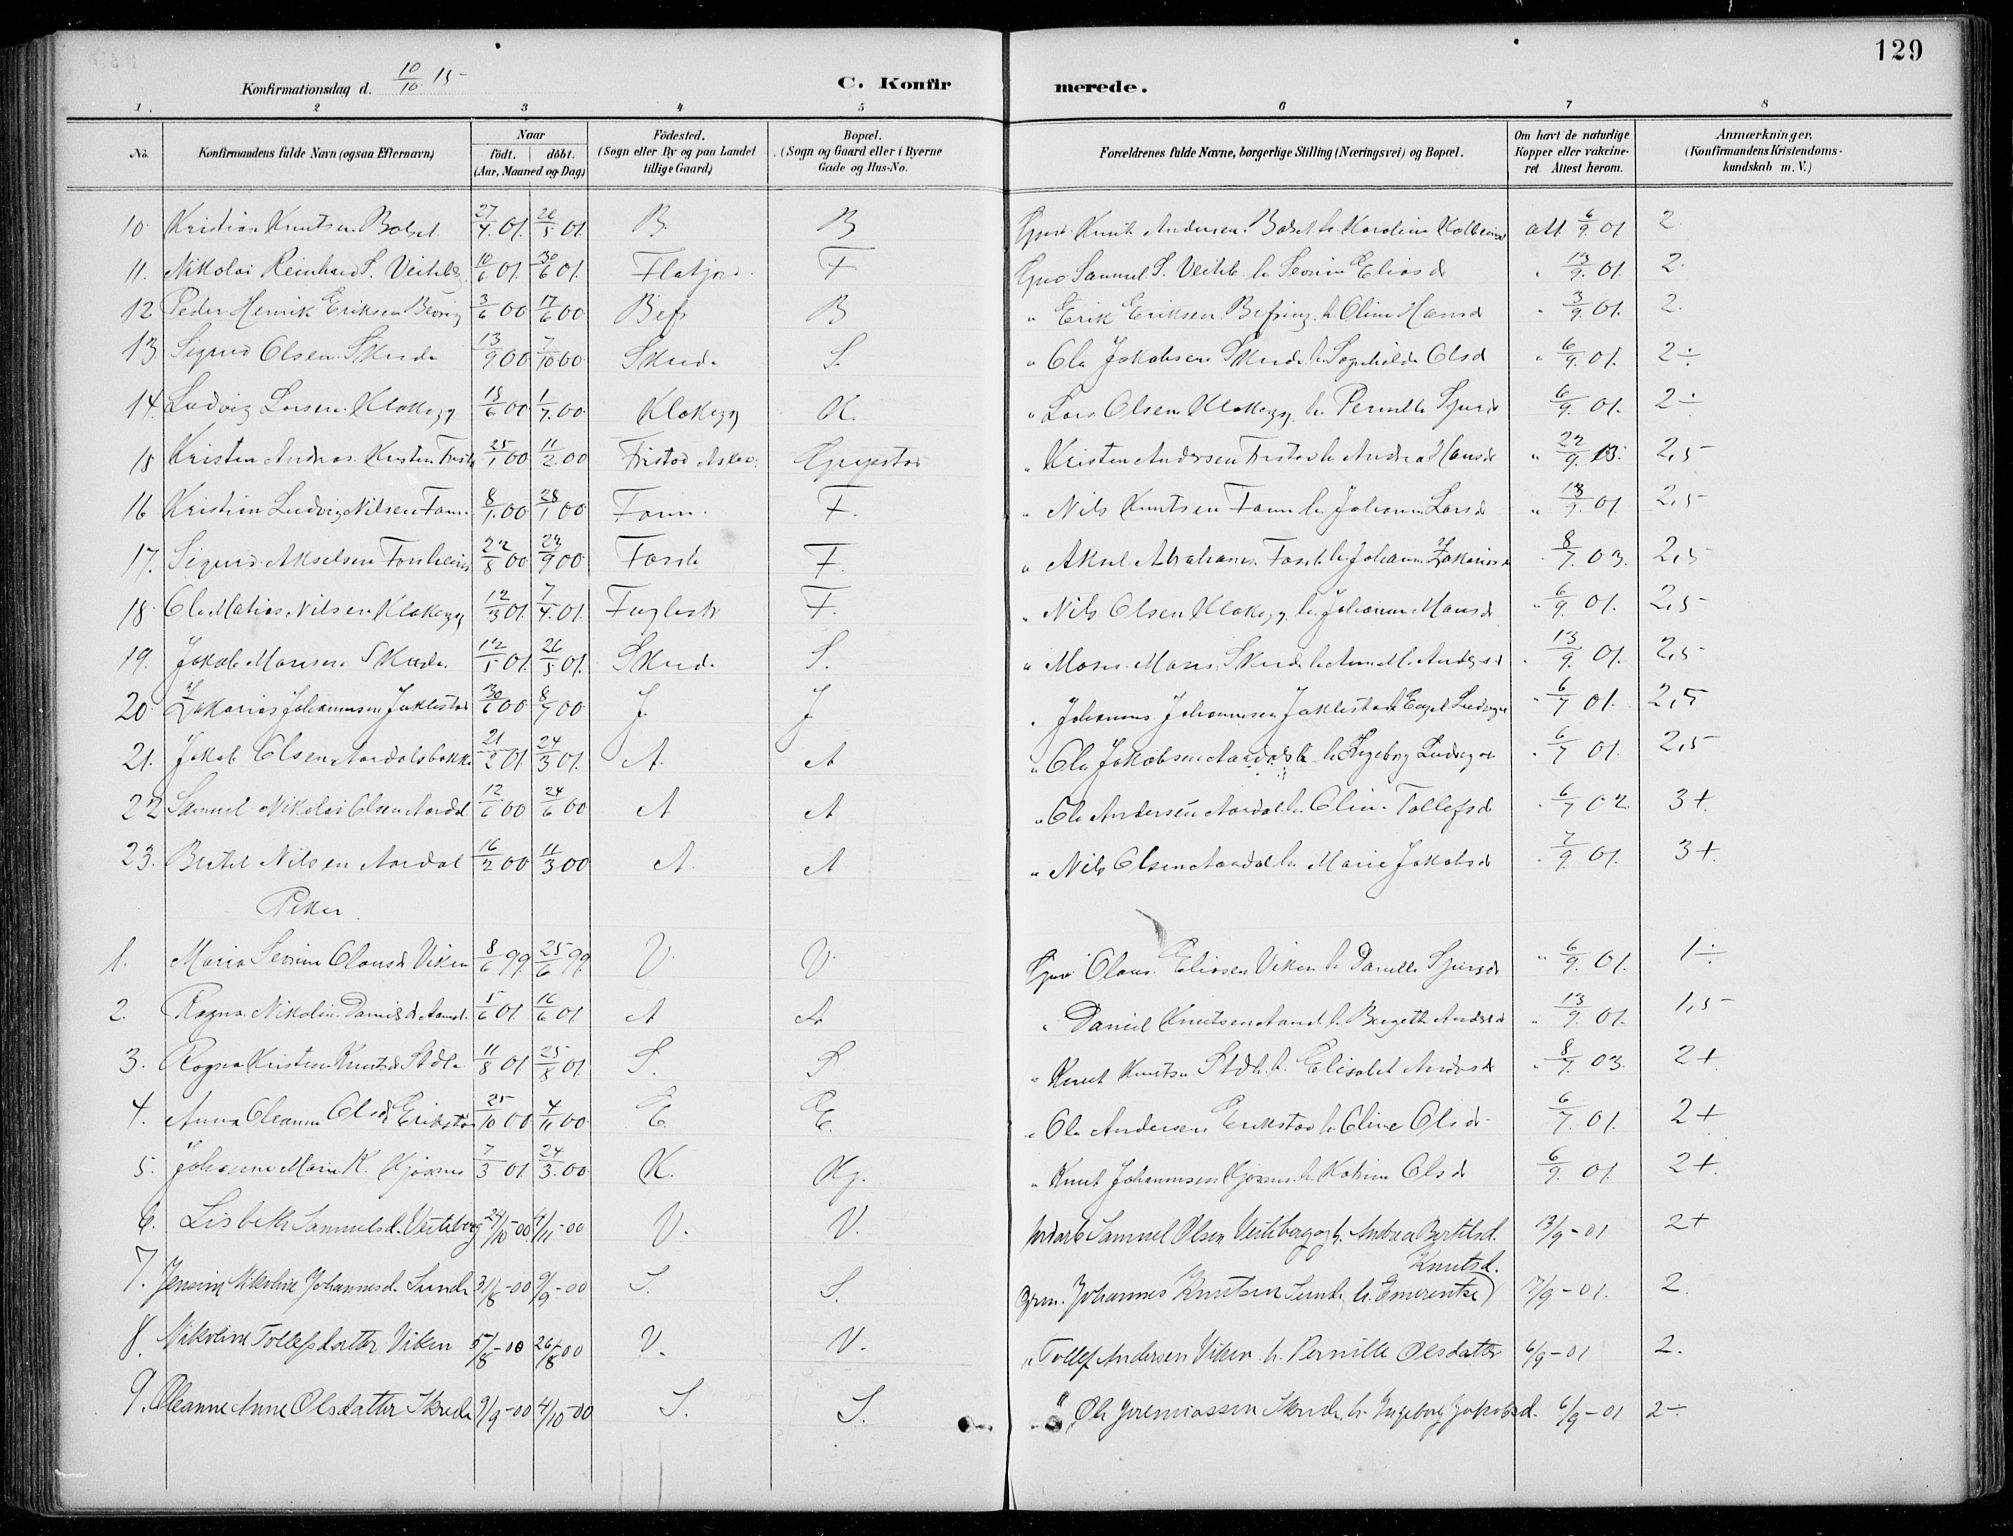 129
Konfirmationsdag d. 10/10 15
C. Konfirmerede.
1. 2 3 4. 5 6 7 8
No. Konfirmandens fulde Navn (ogsaa Efternavn) Naar födt. döbt. (Aar, Maaned og Dag) Födested. (Sogn eller By og paa Landet tillige Gaard) Bopæl. (Sogn og Gaard eller i Byerne Gade og Hus-No. Forældrenes fulde Navne, borgerlige Stilling (Næringsvei) og Bopæl. Om havt de naturlige Kopper eller vakcineret Attest herom. Anmærkninger. (Konfirmandens Kristendomskundskab m. V.)
10 Kristian Knutsen Bolset 27/4 01. 26/5 01. B. B Gmd Knut Andersen Bolset h. Karoline att. 6/9. 01 2
11. Nikolai Reinhard S. Veiteb. 10/6 01. 30/6 01. Flatjord F Gmd Samuel S. Veiteb. h. Sevrine Eliasd " 13/9. 01. 2.
12 Peder Henrik Eriksen 3/6 00 17/6 00 Befr B " Erik Eriksen Befring h. Oline Hansd " 3/9. 01. 2.
13. Sigurd Olsen Skrede 13/9 00 7/10 00 Skrede S. " Ola Jakobsen Skrede h. Olsd " 6/9. 01. 2÷
14. Ludvig Larsen Klakegg 15/6 00 1/7. 00 Klakegg K. " Lars Olsen Klakegg h. Pernille Sjursd 6/9. 01. 2÷
15 Kristen Andreas Kristen 25/1 00 11/2. 00 " Kristen Andersen h. Andrea Hansd " 22/9. 13. 2,5
16 Kristian Ludvig Nilsen 8/1. 00 28/1 00 F. " Nils Knutsen h. Johanne Larsd " 13/9. 01 2,5
17. Sigurd Akselsen 22/8 00 23/9 00 F. " Aksel h. Johanne Zakariasd 8/7. 03. 2,5
18. Ole Matias Nilsen Klakegg 12/3 01. 7/4. 01. F. " Nils Olsen Klakegg h. Johanne Monsd " 6/9. 01. 2,5
19. Jakob Monsen Skrede 12/5 01. 26/5 01. Skrede S. " Mons Skrede h. Anne M. Andersd 13/9. 01. 2,5
20. Zakarias Johannesen Jaklestad 30/6 00 8/7 00 J. J " Johannes Johannesen Jaklestad h. Engel Ludvigsd " 6/7 01. 2,5
21. Jakob Olsen Aardalsbakke 21/2 01. 24/3 01. A. A " Ola Jakobsen h. Ingeborg Ludvigsd " 6/7 01. 2,5
22 Samuel Nikolai Olsen Aardal 12/6 00 24/6 00 A A " Ole Andersen Aardal h. Oline Tollefsd " 6/7 02. 3+.
23. Bertel Nilsen Aardal 16/2 00 11/3 00 A. A " Nils Olsen Aardal h. Marie Jakobsd " 7/9. 01. 3+.
Piker.
1. Maria Sevrine Olausd Viken 8/6 99. 25/6 99. V. V. Gmd Olaus Eliasen Viken h. Pernille Sjursd " 6/9. 01. 1÷
2. Ragna Nikoline Danielsd 5/6 01. 16/6 01 A A. " Daniel Knutsen h. Bergette Andersd " 13/9. 01. 1,5
3. Ragna Kristine Knutsd 11/8 01 25/8 01. S. S " Knut Knutsen h. Elisabet " 8/7. 03. 2+
4. Anna Oleanne Olsd Erikstad 25/10 00 4/11 00. E. E. " Ole Andersen Erikstad h. Oline Olsd 6/7. 01. 2+
5. Johanne Marie K. Kjøsnes 7/3 01. 24/3. 00. K. Kj. " Knut Johannesen Kjøsnes h. Katrine Olsd 6/9. 01. 2+.
6. Lisbeth Samuelsd. Veiteberg 24/10-00 4/11-00 V. V. Jordarb Samuel Olsen Veiteberg og h. Andrea Bertelsd. 13/9-01 2+
7. Jensine Nikoline Johannesd. Sunde 31/8-00 9/9-00 S. S. Gm. Johannes Knutsen Sunde h. Emerentse Knutsd. 17/9-01. 2.
8. Nikoline Tollefsdatter Viken 5/8-00 26/8 00 V. V. " Tollef Andersen Viken h. Pernille Olsdatter 6/9-01 2.
9. Oleanne Anne Olsdatter Skrede 9/9-00 4/10-00 S. S. " Ole Jeremiassen Skrede, h. Ingeborg Jakobsd. 6/9-01 2÷